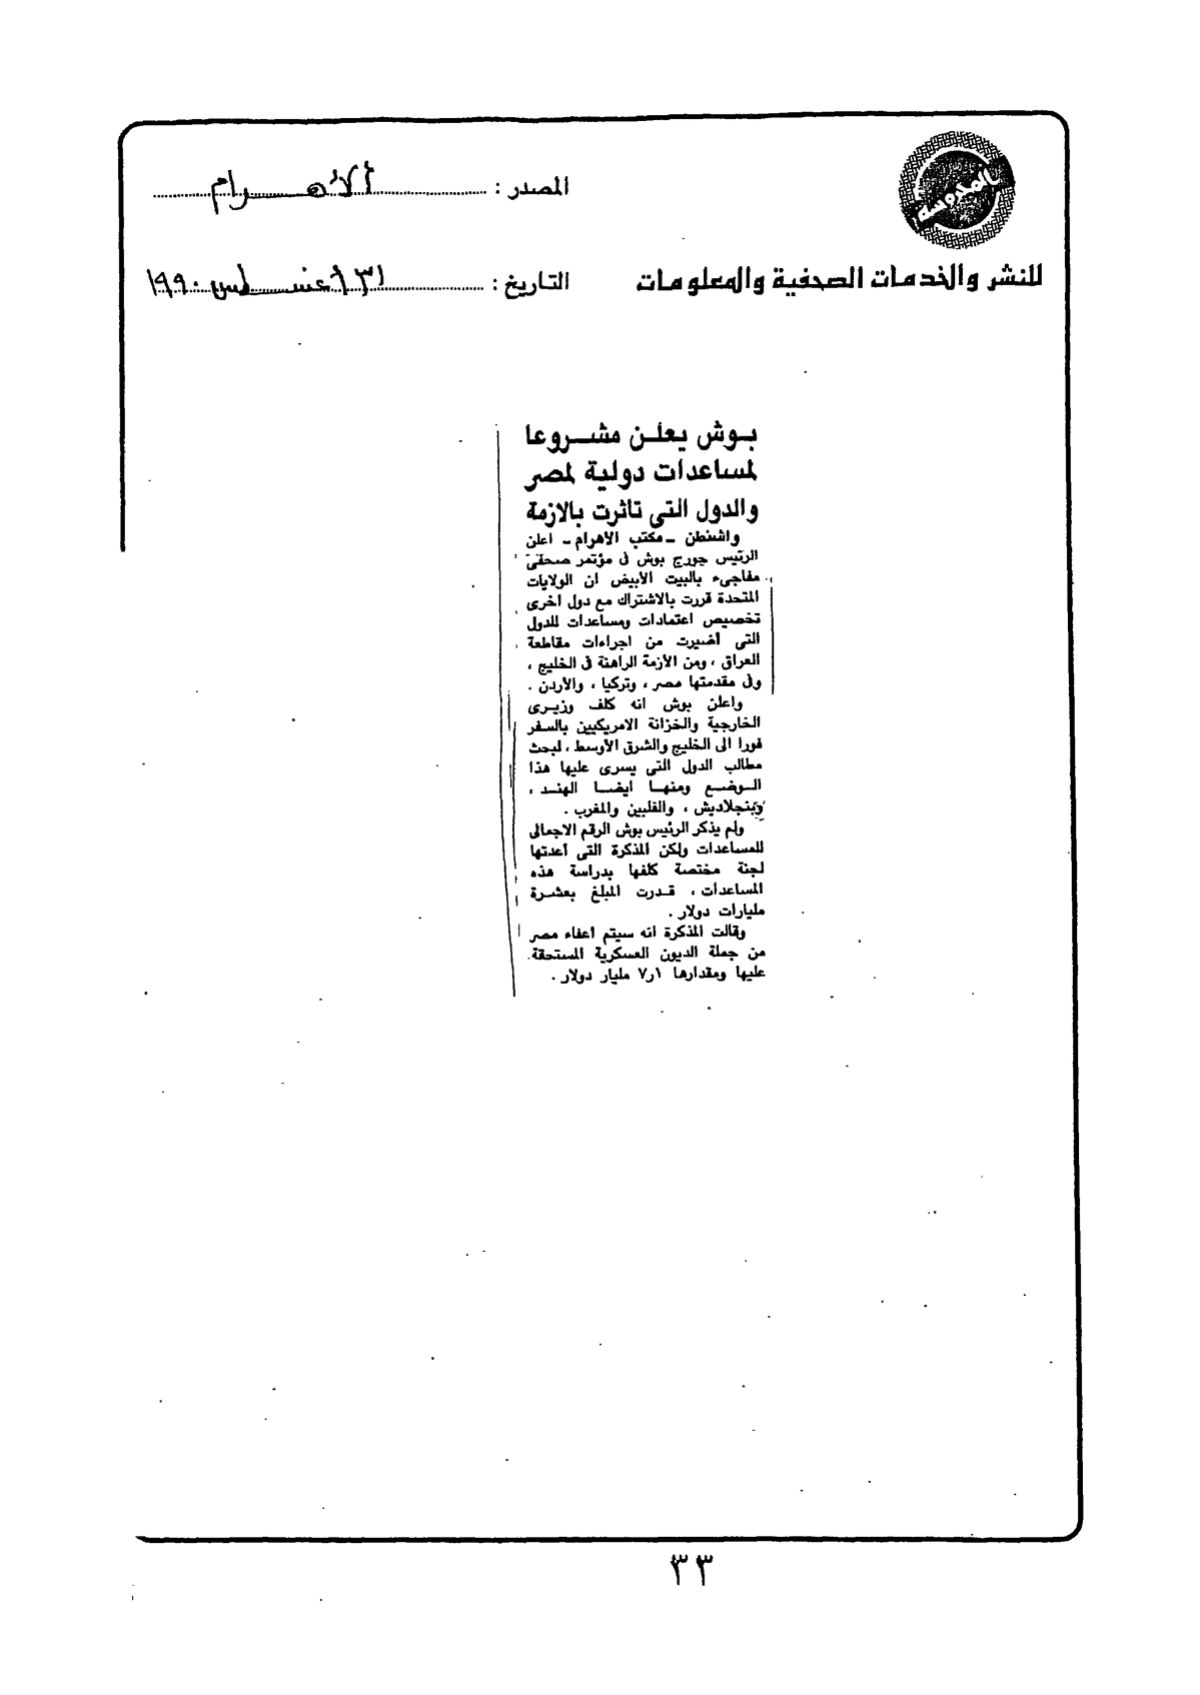 المدوسة
المصدر : الأهرام
للنشر والخدمات الصحفية والمعلومات
التاريخ : ٣١ أغسطس ١٩٩٠
بوش يعلن مشروعا
لمساعدات دولية لمصر
والدول التى تاثرت بالازمة
واشنطن - مكتب الأهرام - اعلن
الرئيس جورج بوش فى مؤتمر صحفى
مفاجىء بالبيت الأبيض ان الولايات
المتحدة قررت بالاشتراك مع دول اخرى
تخصيص اعتمادات ومساعدات للدول
التى أضيرت من اجراءات مقاطعة
العراق ، ومن الأزمة الراهنة فى الخليج ،
وفى مقدمتها مصر ، وتركيا ، والأردن .
واعلن بوش انه كلف وزيرى
الخارجية والخزانة الامريكيين بالسفر
فورا الى الخليج والشرق الأوسط ، لبحث
مطالب الدول التى يسرى عليها هذا
الوضع ومنها ايضا الهند ،
وبنجلاديش ، والفلبين والمغرب .
ولم يذكر الرئيس بوش الرقم الاجمالى
للمساعدات ولكن المذكرة التى أعدتها
لجنة مختصة كلفها بدراسة هذه
المساعدات ، قدرت المبلغ بعشرة
مليارات دولار .
وقالت المذكرة انه سيتم اعفاء مصر
من جملة الديون العسكرية المستحقة
عليها ومقدارها ٧٫١ مليار دولار .
٣٣